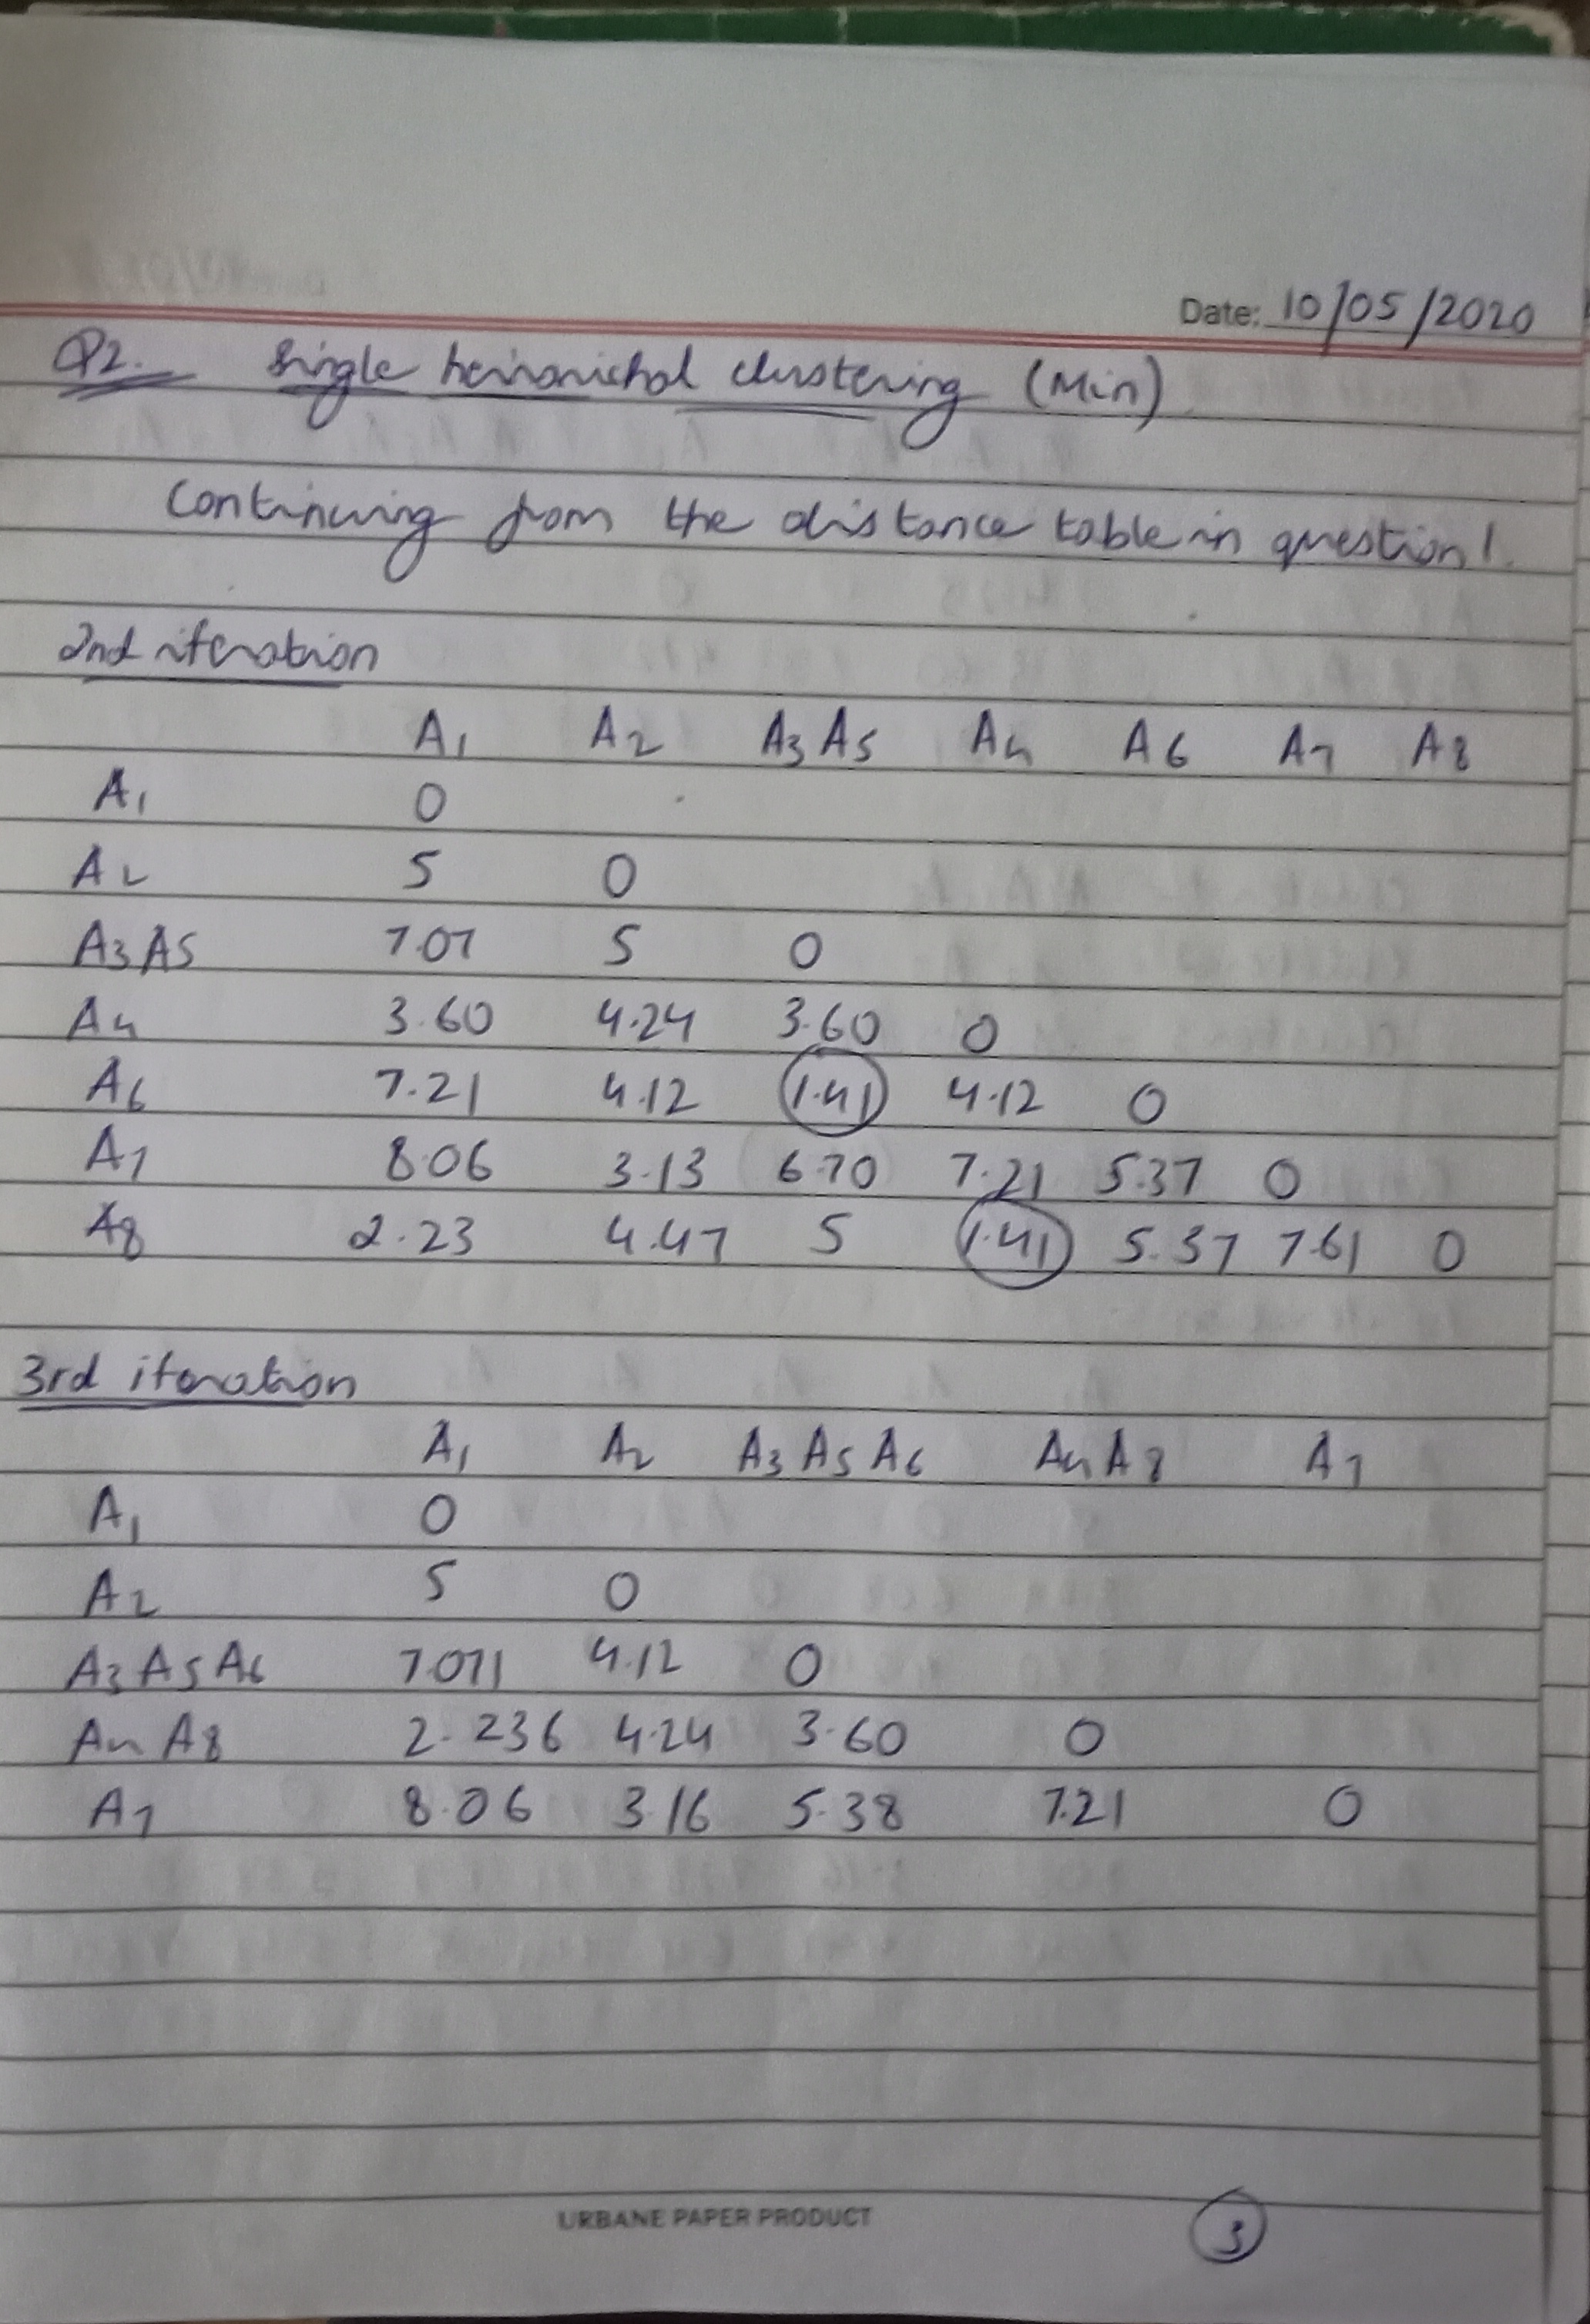 Date: 10/05/2020
Q2. Single heirarichal clustering (Min)
Continuing from the distance table in question 1.
2nd iteration
A1 A2 A3A5 A4 A6 A7 A8
A1 0
A2 5 0
A3A5 7.07 5 0
A4 3.60 4.24 3.60 0
A6 7.21 4.12 1.41 4.12 0
A7 8.06 3.13 6.70 7.21 5.37 0
A8 2.23 4.47 5 1.41 5.37 7.61 0
3rd iteration
A1 A2 A3A5A6 A4A8 A7
A1 0
A2 5 0
A3A5A6 7.071 4.12 0
A4A8 2.236 4.24 3.60 0
A7 8.06 3.16 5.38 7.21 0
URBANE PAPER PRODUCT
3